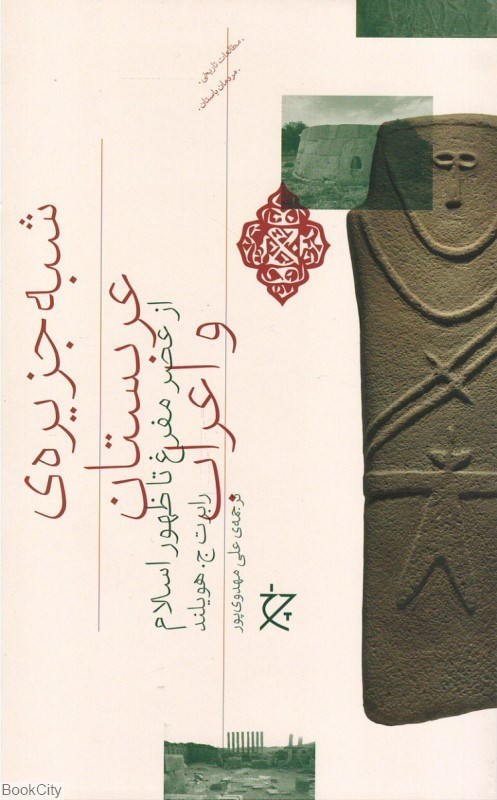 .مطالعات تاریخی.
.مردمان باستان.
شبه جزیره‌ی
عربستان
و اعراب
از عصر مفرغ تا ظهور اسلام
رابرت ج. هویلند
ترجمه‌ی علی مهدوی‌پور
BookCity